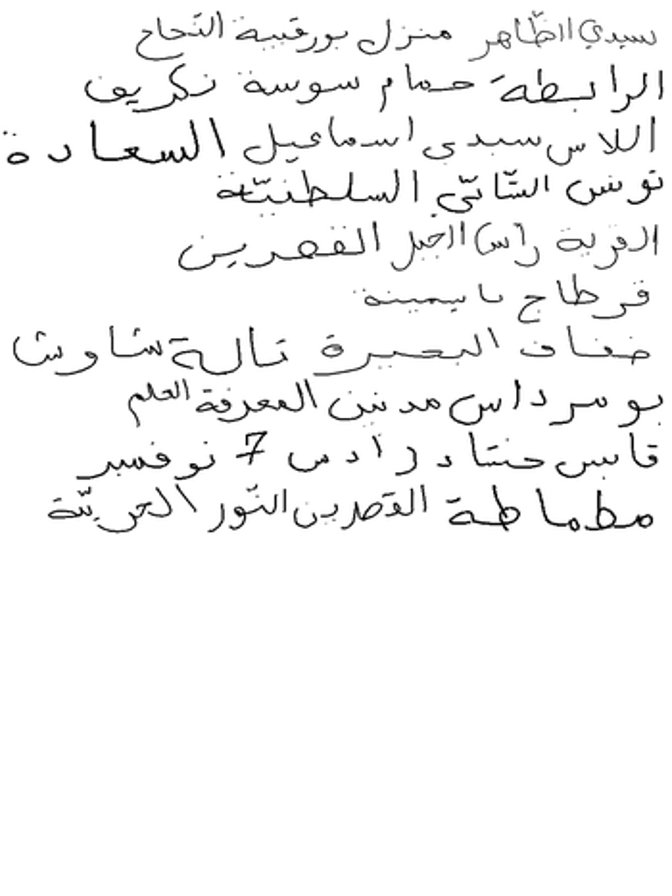 سيدي الظّاهر منزل بورقيبة النّجاح
الرابطة حمام سوسة نكريف
اللاس سيدي اسماعيل السعادة
تونس الشّاتّي السلطنيّة
القرية رأس الجبل القصرين
قرطاج ياسمينة
ضفاف البحيرة تالة شاوش
بومرداس مدنين المعرفة العلم
قابس حنشاد رادس 7 نوفمبر
مطماطة القصرين النّور الحريّة